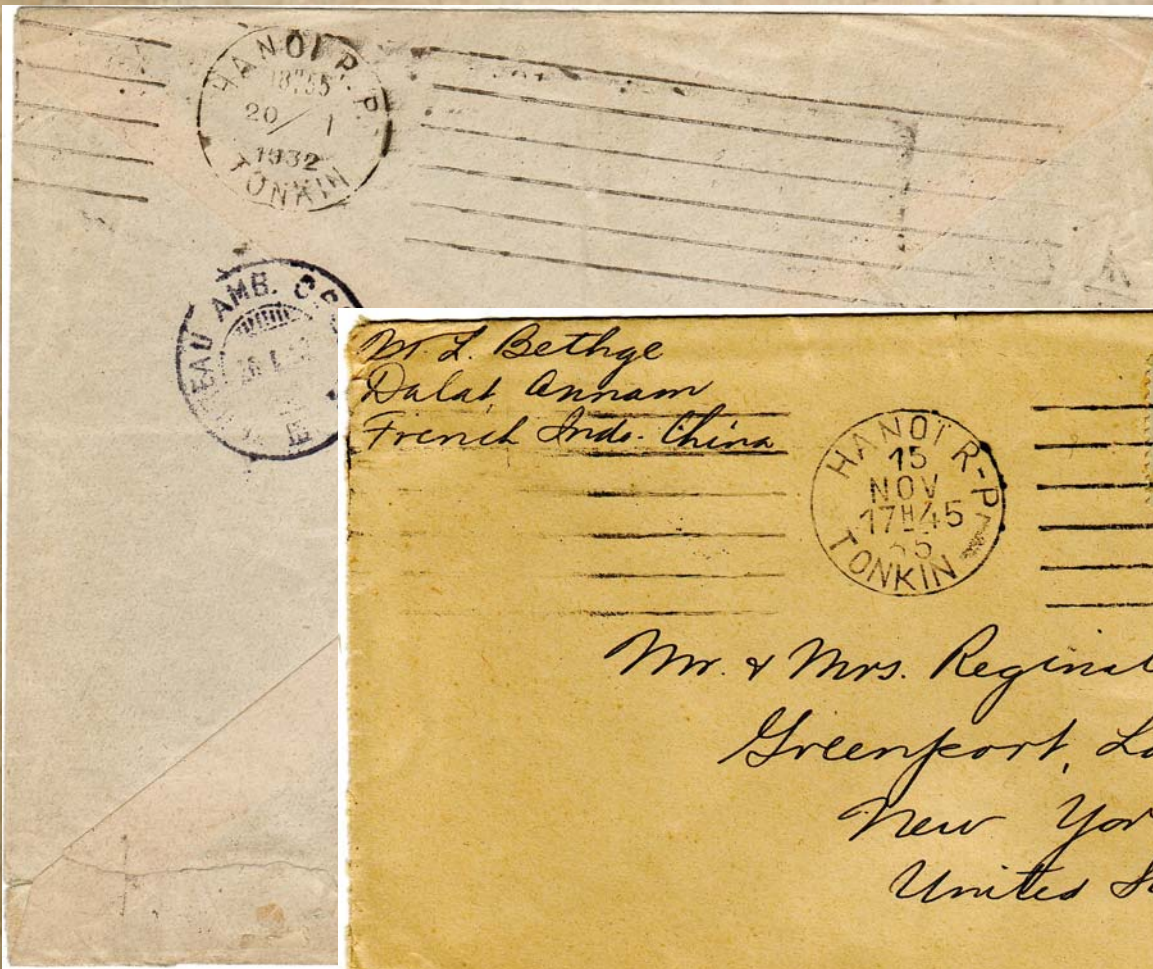 HANOI R.P.
18H55
20/1
1932
TONKIN
BUREAU AMB.
M. L. Bethge
Dalat, Annam
French Indo-China
HANOI R-P
15
NOV
17H45
TONKIN
Mr. & Mrs. Reginal
Greenport, Lo
New Yor
United St